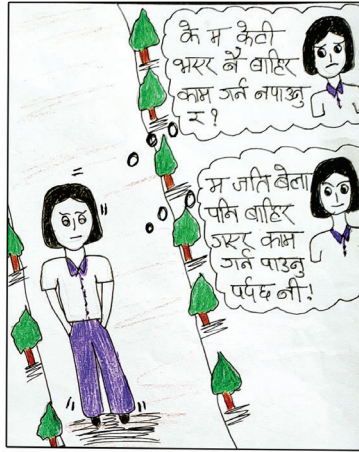 के म केटी
भएर नै बाहिर
काम गर्न नपाउनु
र?
म जति बेला
पनि बाहिर
गएर काम
गर्न पाउनु
पर्पछ नी!